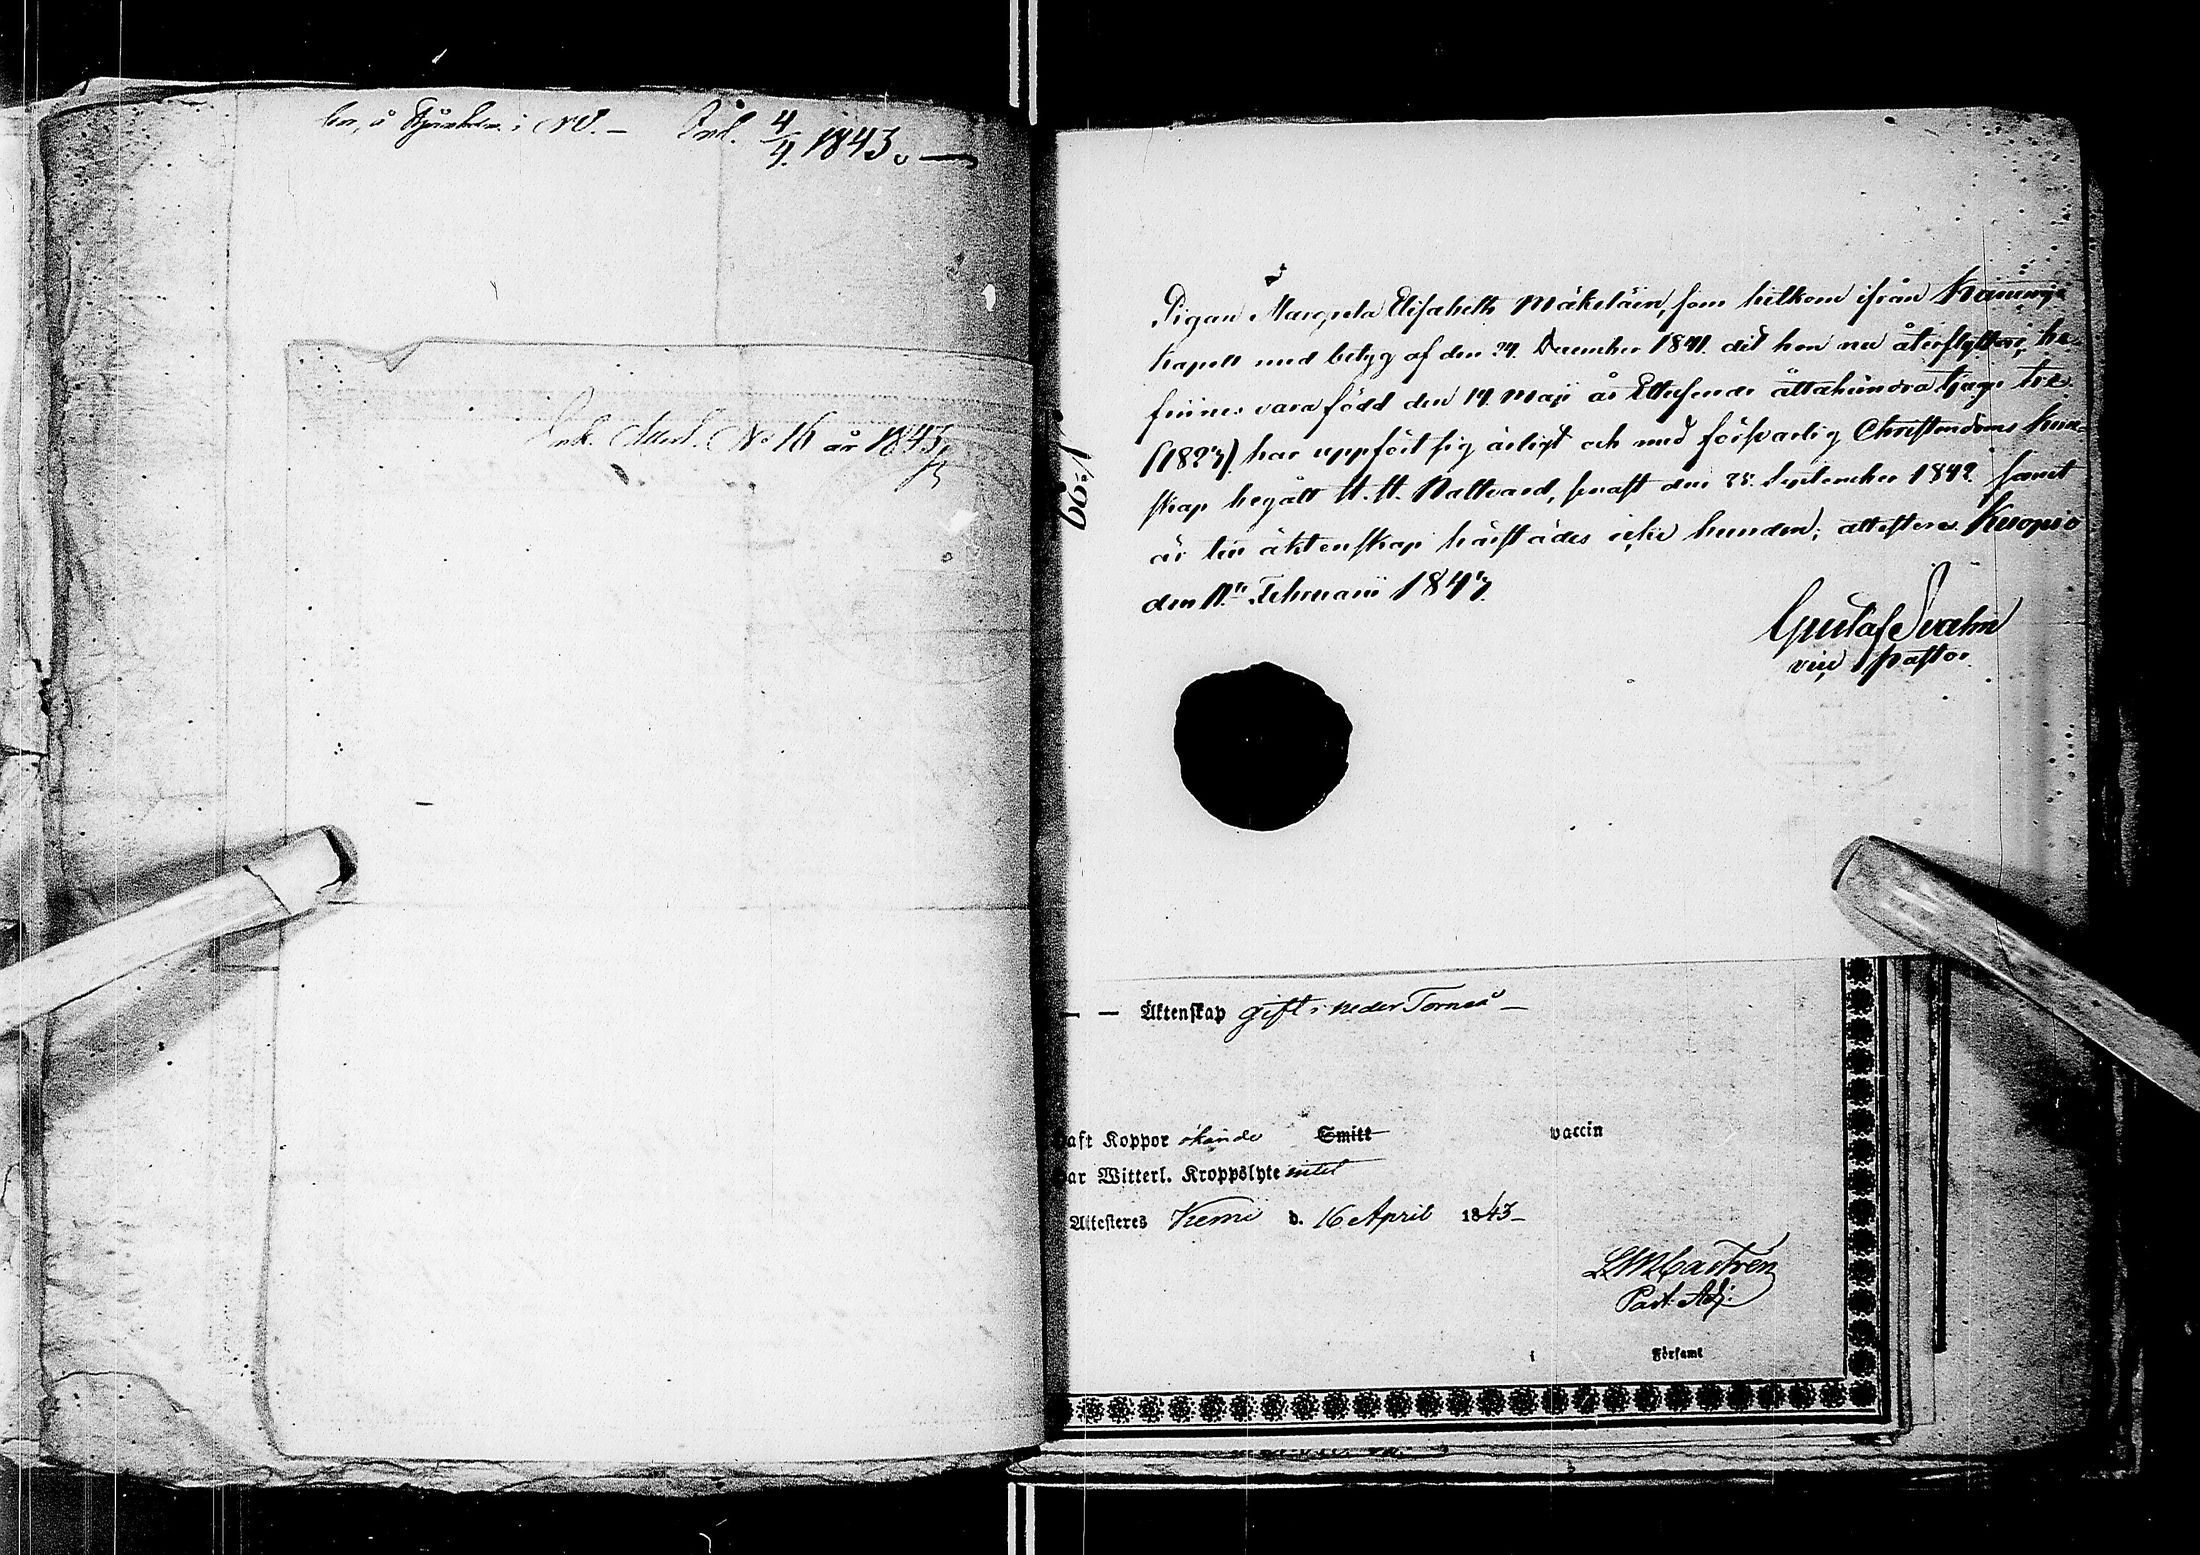 ber, å Tjänsten i NV. — Inl. 4/4. 1843. —
Ink. Attest. No 16 år 1843,
66:
Pigan Margreta Elisabeth Mäkeläin, som hitkom ifrån
Kapell med betyg af den 24. December 1841. dit hon nu återflyttar, be-
finnes vara född den 14. Maji år Ettusende åttahundra tjugu tre
(1823). har uppfört sig ärligt och med försvarlig Christendoms kun-
skap begått H. H. Nattvard, senast den 25. September 1842. samt
är till äktenskap härstädes icke bunden; attesterar Kuopio
den 11.te Februarii 1843.
Gustaf Svahn
vice pastor.
— — Äktenskap gift i neder Torneå —
aft Koppor okände Smitt vaccin
ar Witterl. Kroppslyte intet
Attesteres Kemi d. 16 April 1843—
Castrén
Past. Adj.
i Församl